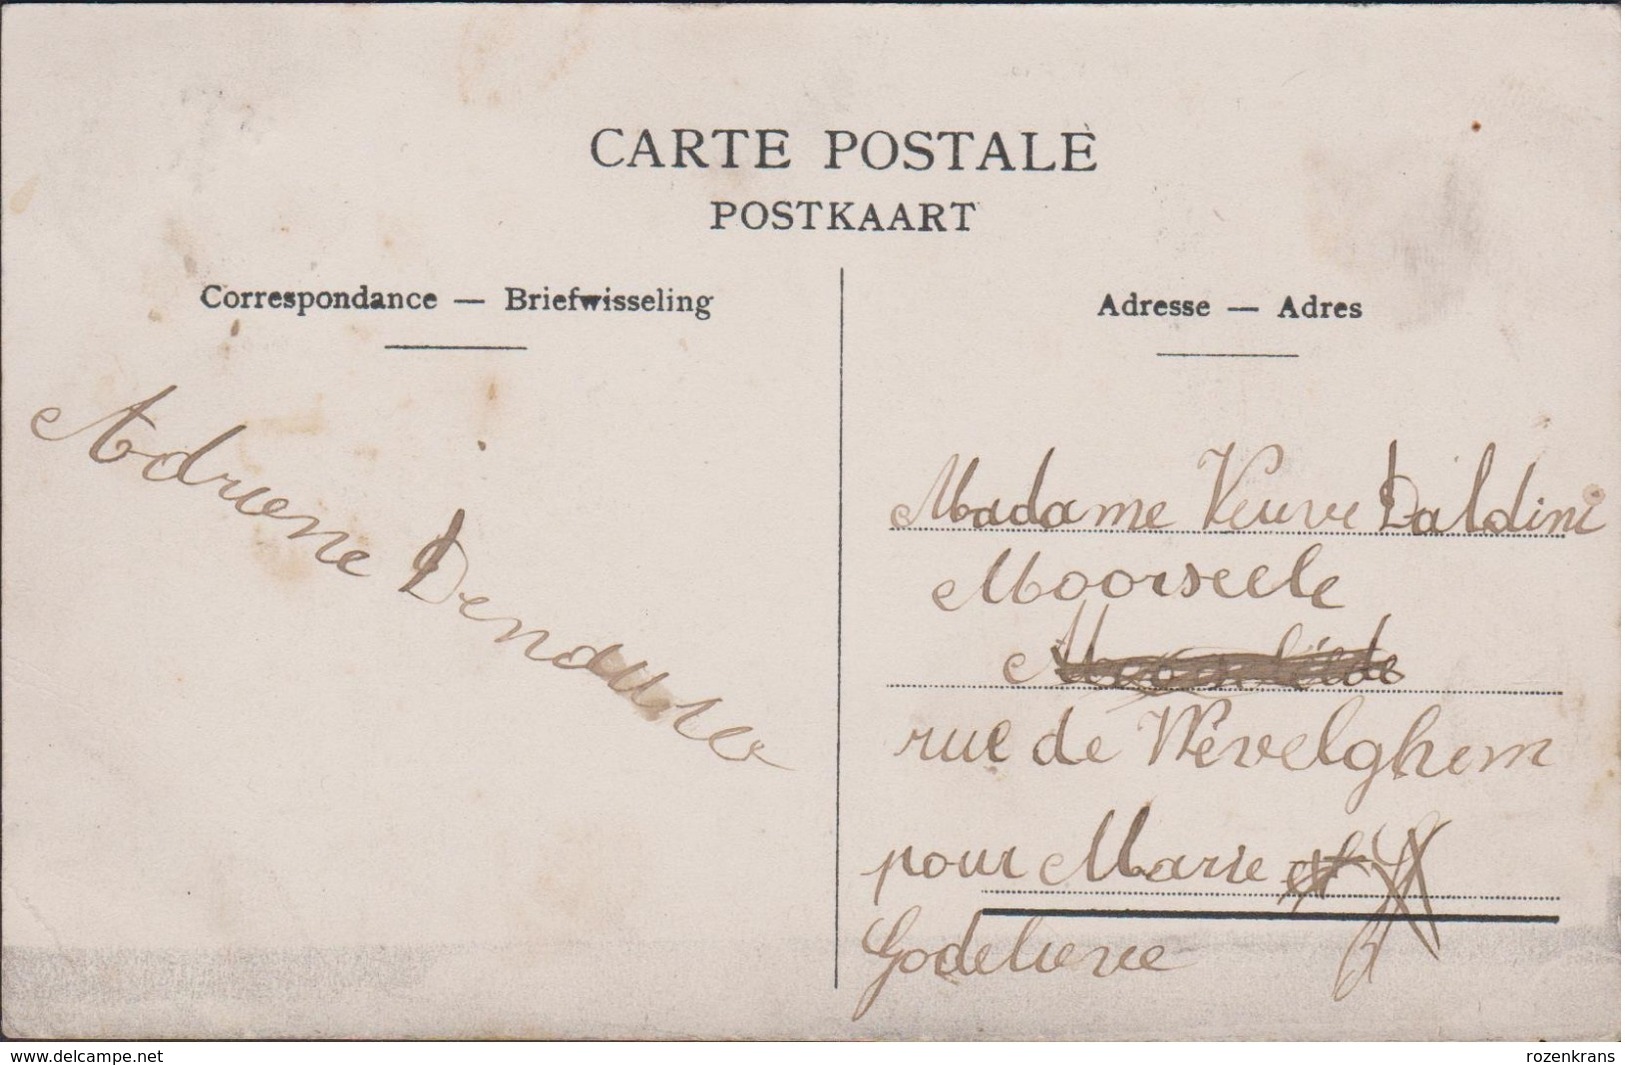 CARTE POSTALE
POSTKAART
Correspondance — Briefwisseling
Adresse — Adres
Adriene
Madame Veuve Daldini
Moorseele
rue de Wevelghem
pour Marie et
Godelieve
www.delcampe.net
rozenkrans